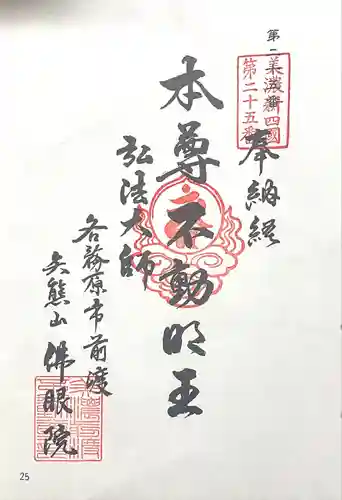 奉納経
美濃新四國
第二十五番
本尊不動明王
弘法大師
各務原市前渡
矢熊山 佛眼院
25